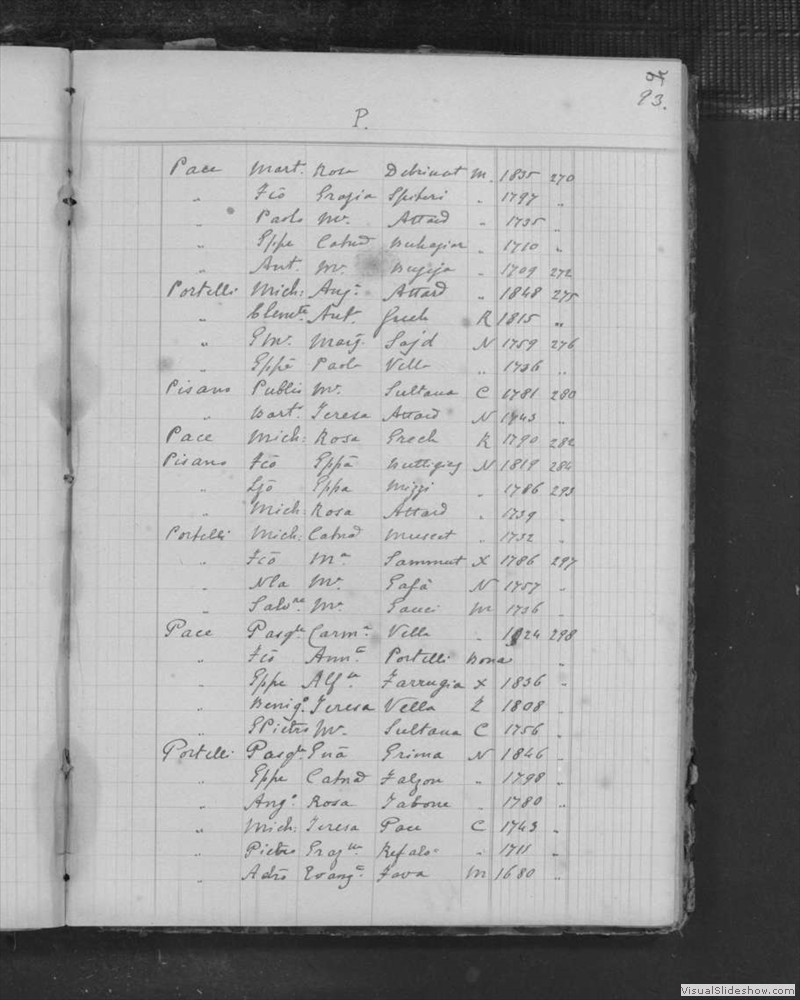 93.
P.
Pace Mart. Rosa Debrincat M. 1835 270
„ Fcō Grazia Spiteri „ 1797 „
„ Paolo Mᵃ. Attard „ 1735 „
„ Eppe Catnᵈ Buhagiar „ 1710 „
„ Ant. Mᵃ. Bugeja „ 1709 272
Portelli Mich: Angᵃ Attard „ 1848 275
„ Clemᵗᵉ Ant. Grech R 1815 „
„ GMᵃ. Marg. Sajd N 1759 276
„ Eppē Paola Vella „ 1736 „
Pisano Publio Mᵃ. Sultana C 1781 280
„ Bartᵒ Teresa Attard N 1743 „
Pace Mich: Rosa Grech R 1790 282
Pisano Fcō Eppā Buttigieg N 1819 284
„ Eppa Mizzi „ 1786 293
„ Mich: Rosa Attard „ 1739 „
Portelli Mich: Catnᵈ Muscat „ 1732 „
„ Fcō Mᵃ Sammut X 1786 297
„ Nla Mᵃ. Gafà N 1757 „
„ Salvʳᵉ Mᵃ. Gauci M 1736 „
Pace Pasqˡᵉ Carmᵃ Vella „ 1824 298
„ Fcō Annᵃ Portelli Bona „
„ Eppe Alfⁿᵃ Farrugia X 1836 „
„ Benigᵒ Teresa Vella Z 1808 „
„ GPietro Mᵃ. Sultana C 1756 „
Portelli Pasqˡᵉ Grima N 1846 „
„ Eppe Catnᵈ Falzon „ 1798 „
„ Angᵒ Rosa Tabone „ 1780 „
„ Mich: Teresa Pace C 1743 „
„ Pietro Grazⁱᵃ Refalo „ 1711 „
„ Adrō Evangᵃ Fava M 1680 „
VisualSlideshow.com